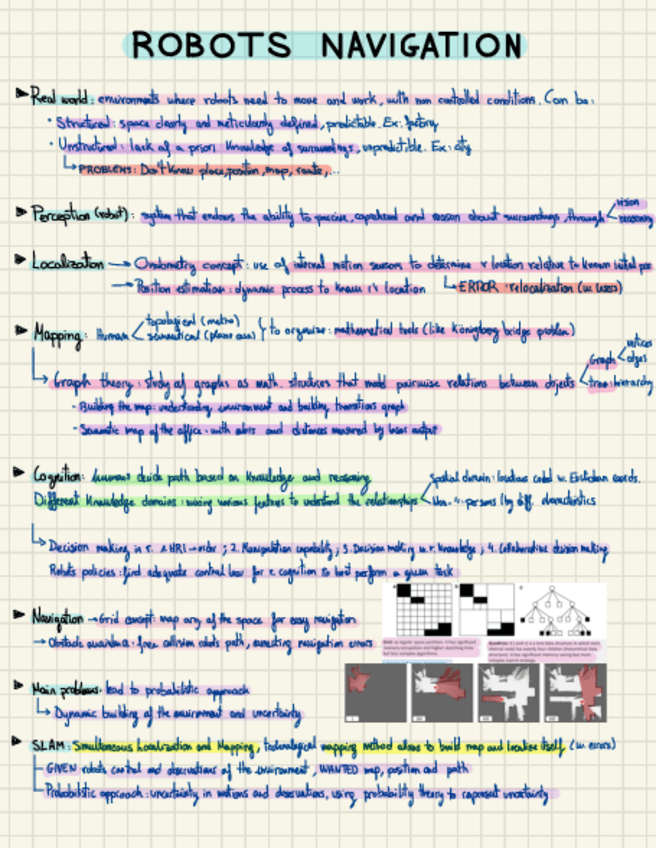 ROBOTS NAVIGATION
Real world: environments where robots need to move and work, with non controlled conditions. Can be:
• Structured: space clearly and meticulously defined, predictable. Ex: factory
• Unstructured: lack of a priori knowledge of surroundings, unpredictable. Ex: city
PROBLEMS: Don't know place, position, map, route,...
Perception (robot): system that endows the ability to perceive, comprehend and reason about surroundings, through
vision
reasoning
Localization → concept: use of internal motion sensors to determine location relative to known initial
→ Position estimation: dynamic process to know location
ERROR: relocalization (w. users)
Mapping: Human
topological (metric)
semantical
to organize: mathematical tools (like Königberg bridge problem)
Graph theory: study of graphs as math. structures that model pairwise relations between objects
Graph
vertices
edges
tree: hierarchy
- Building the map: understanding environment and building transitions graph
- Semantic map of the office: with and distances measured by laser output
Cognition: humans decide path based on knowledge and reasoning
Different knowledge domains: mixing various features to the relationships
Spatial domain: locations coded w. Euclidean coords.
persons (by diff. characteristics
Decision making in r. HRI → order; 2. Manipulation capability; 3. Decision making w.r. knowledge; 4. Collaborative decision making
Robots policies: find adequate control law for r. cognition to best perform a given task
Navigation → Grid concept: map any of the space for easy navigation
→ Obstacle avoidance: free collision robots path, navigation errors
Main problems: lead to probabilistic approach
Dynamic building of the environment and uncertainty
SLAM: Simultaneous Localization and Mapping, mapping method allows to build map and localize itself (w. errors)
GIVEN robots control and observations of the environment, WANTED map, position and path
Probabilistic approach: uncertainty in motions and observations, using probability theory to represent uncertainty